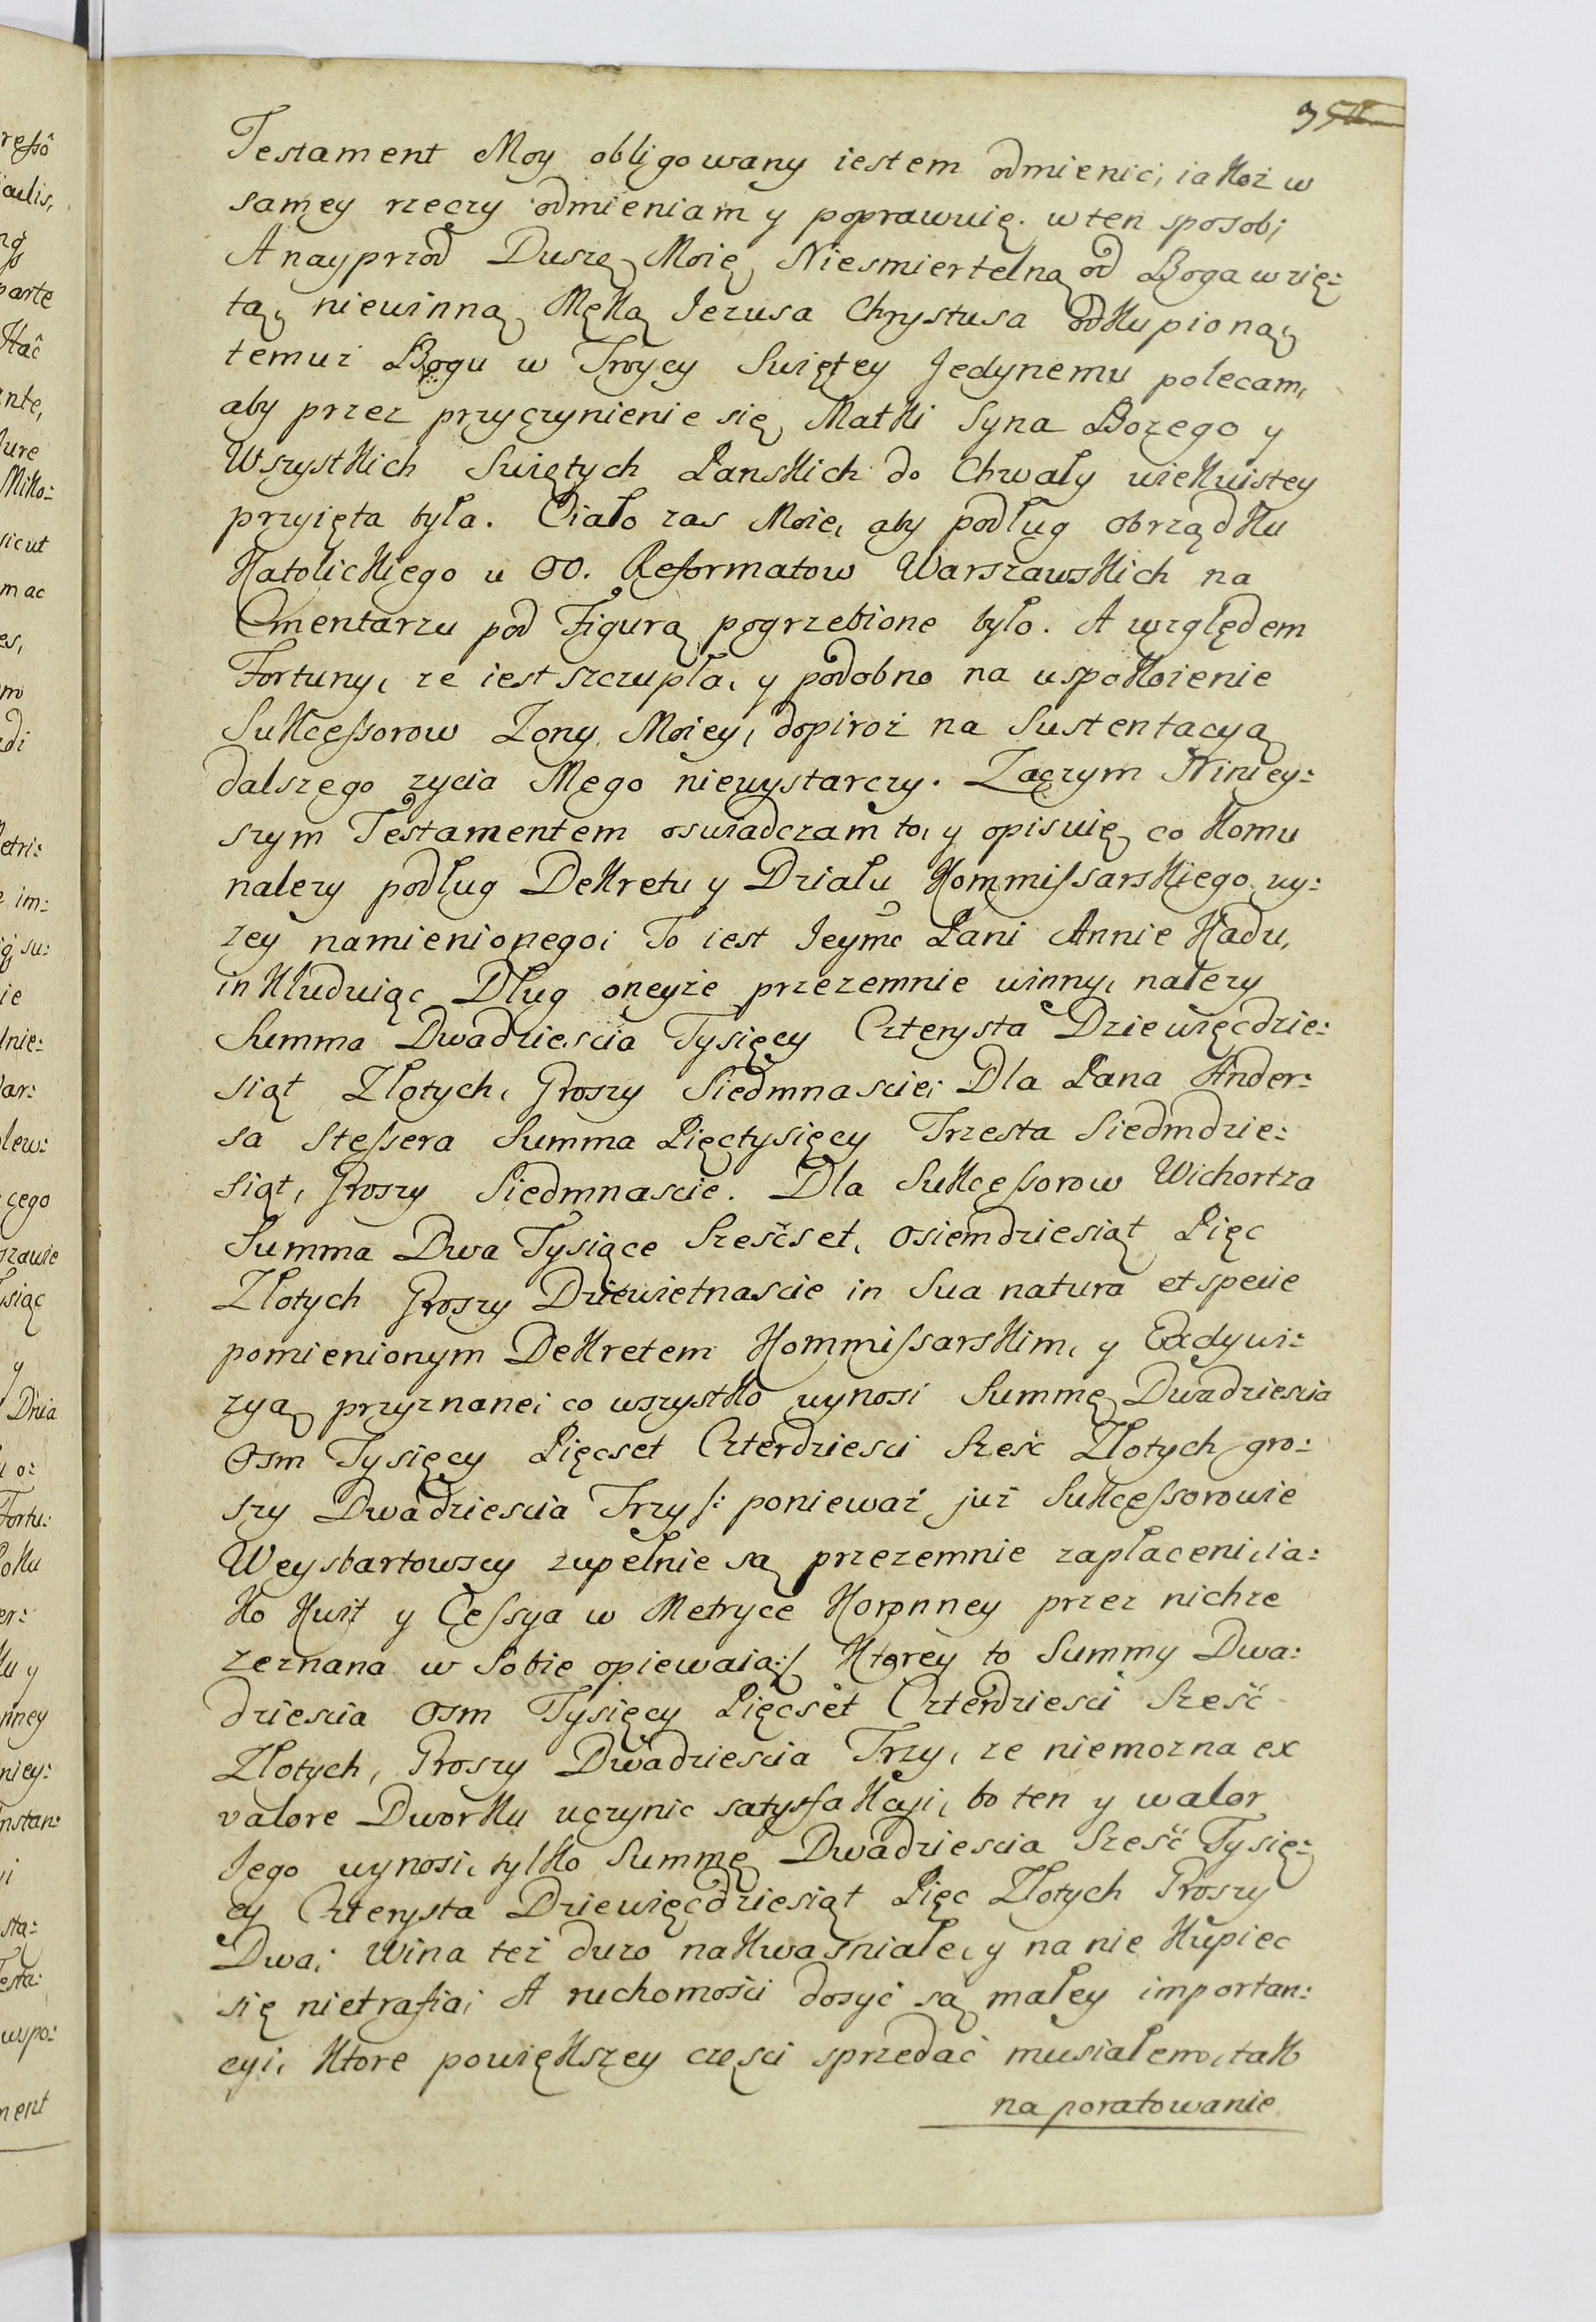 Testament Moy obligowany iestem odmienic, iakoż w
samey rzeczy odmieniam y poprawuię. w ten sposob;
A nayprzod Duszę Moię Niesmiertelną od Boga wzię:
tą, niewinną Męką Jezusa Chrystusa odkupioną,
temuż Bogu w Troycy Swiętey Jedynemu polecam,
aby przez przyczynienie się Matki Syna Bozego y
Wszystkich Swiętych Panskich do Chwały wiekuistey
przyięta była. Ciało zas Moie, aby podług obrządku
Katolickiego u OO. Reformatow Warszawskich na
Cmentarzu pod Figurą pogrzebione było. A względem
Fortuny, ze iest szczupła, y podobno na uspokoienie
Sukcessorow Zony Moiey, dopiroż na Sustentacyą
dalszego zycia Mego niewystarczy. Zaczym Niniey:
szym Testamentem oswiadczam to, y opisuię co komu
nalezy podług Dekretu y Działu Kommissarskiego wy:
zey namienionego; To iest Jeymc Pani Annie Kadu,
inkluduiąc Dług oneyże przezemnie winny, nalezy
Summa Dwadziescia Tysięcy Czterysta Dziewięcdzie:
siąt Złotych, Groszy Siedmnascie; Dla Pana Ander:
sa Stessera Summa Pięctysięcy Trzesta Siedmdzie:
siąt, Groszy Siedmnascie. Dla Sukcessorow Wichortza
Summa Dwa Tysiące Szesćset, Osiemdziesiąt Pięc
Złotych Groszy Dziewietnascie in Sua natura et specie
pomienionym Dekretem Kommissarskim, y Exdywi:
zyą przyznane; co wszystko wynosi Summę Dwadziescia
Osm Tysięcy Pięcset Czterdziesci Szesć Złotych gro:
szy Dwadziescia Trzy /: ponieważ już Sukcessorowie
Weysbartowscy zupełnie są przezemnie zapłaceni, ia:
ko Kwit y Cessya w Metryce Koronney przez nichze
zeznana w Sobie opiewaią :/ Ktorey to Summy Dwa:
dziescia Osm Tysięcy Pięcset Czterdziesci Szesć
Złotych, Groszy Dwadziescia Trzy, ze niemozna ex
valore Dworku uczynic satysfakcyi, bo ten y walor
Jego wynosi, tylko Summę Dwadziescia Szesć Tysię:
cy Czterysta Dziewięcdziesiąt Pięc Złotych Groszy
Dwa; Wina też duzo nakwasniałe, y na nie Kupiec
się nietrafia; A ruchomości dosyć są małey importan:
cyi, Ktore powiększey częsci sprzedać musiałem, tak
na poratowanie